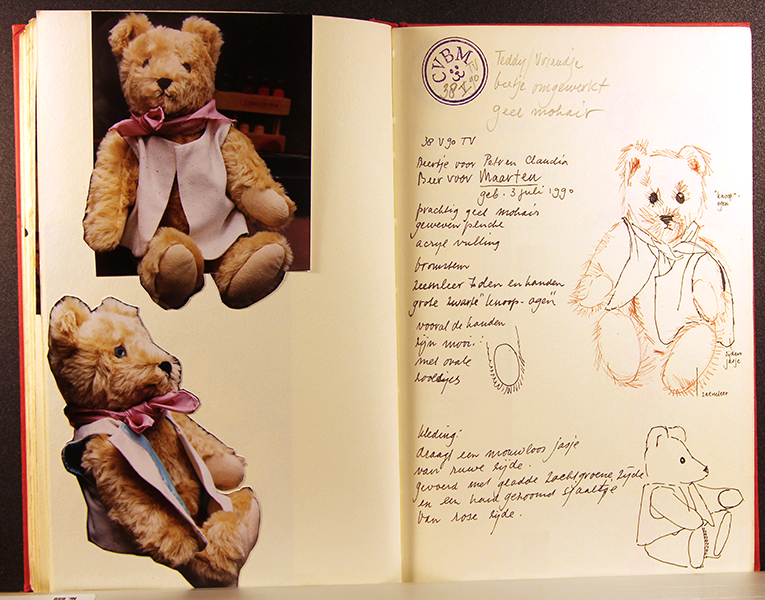 CVBM
TV
38 V 90
Teddy/Vriendje
beertje omgewerkt
geel mohair
38 V 90 TV
Beertje voor Petr en Claudia
Beer voor Maarten
geb. 3 juli 1990
prachtig geel mohair
geweven pluche
acryl vulling
bromstem
zeemleer zolen en handen
grote zwarte "knoop-ogen"
vooral de handen
zijn mooi
met ovale
zooltjes
"knoop-
ogen"
zijden
jasje
zeemleer
kleding:
draagt een mouwloos jasje
van ruwe zijde.
gevoerd met gladde zachtgroene zijde
en een hand gezoomd sjaaltje
van rose zijde.